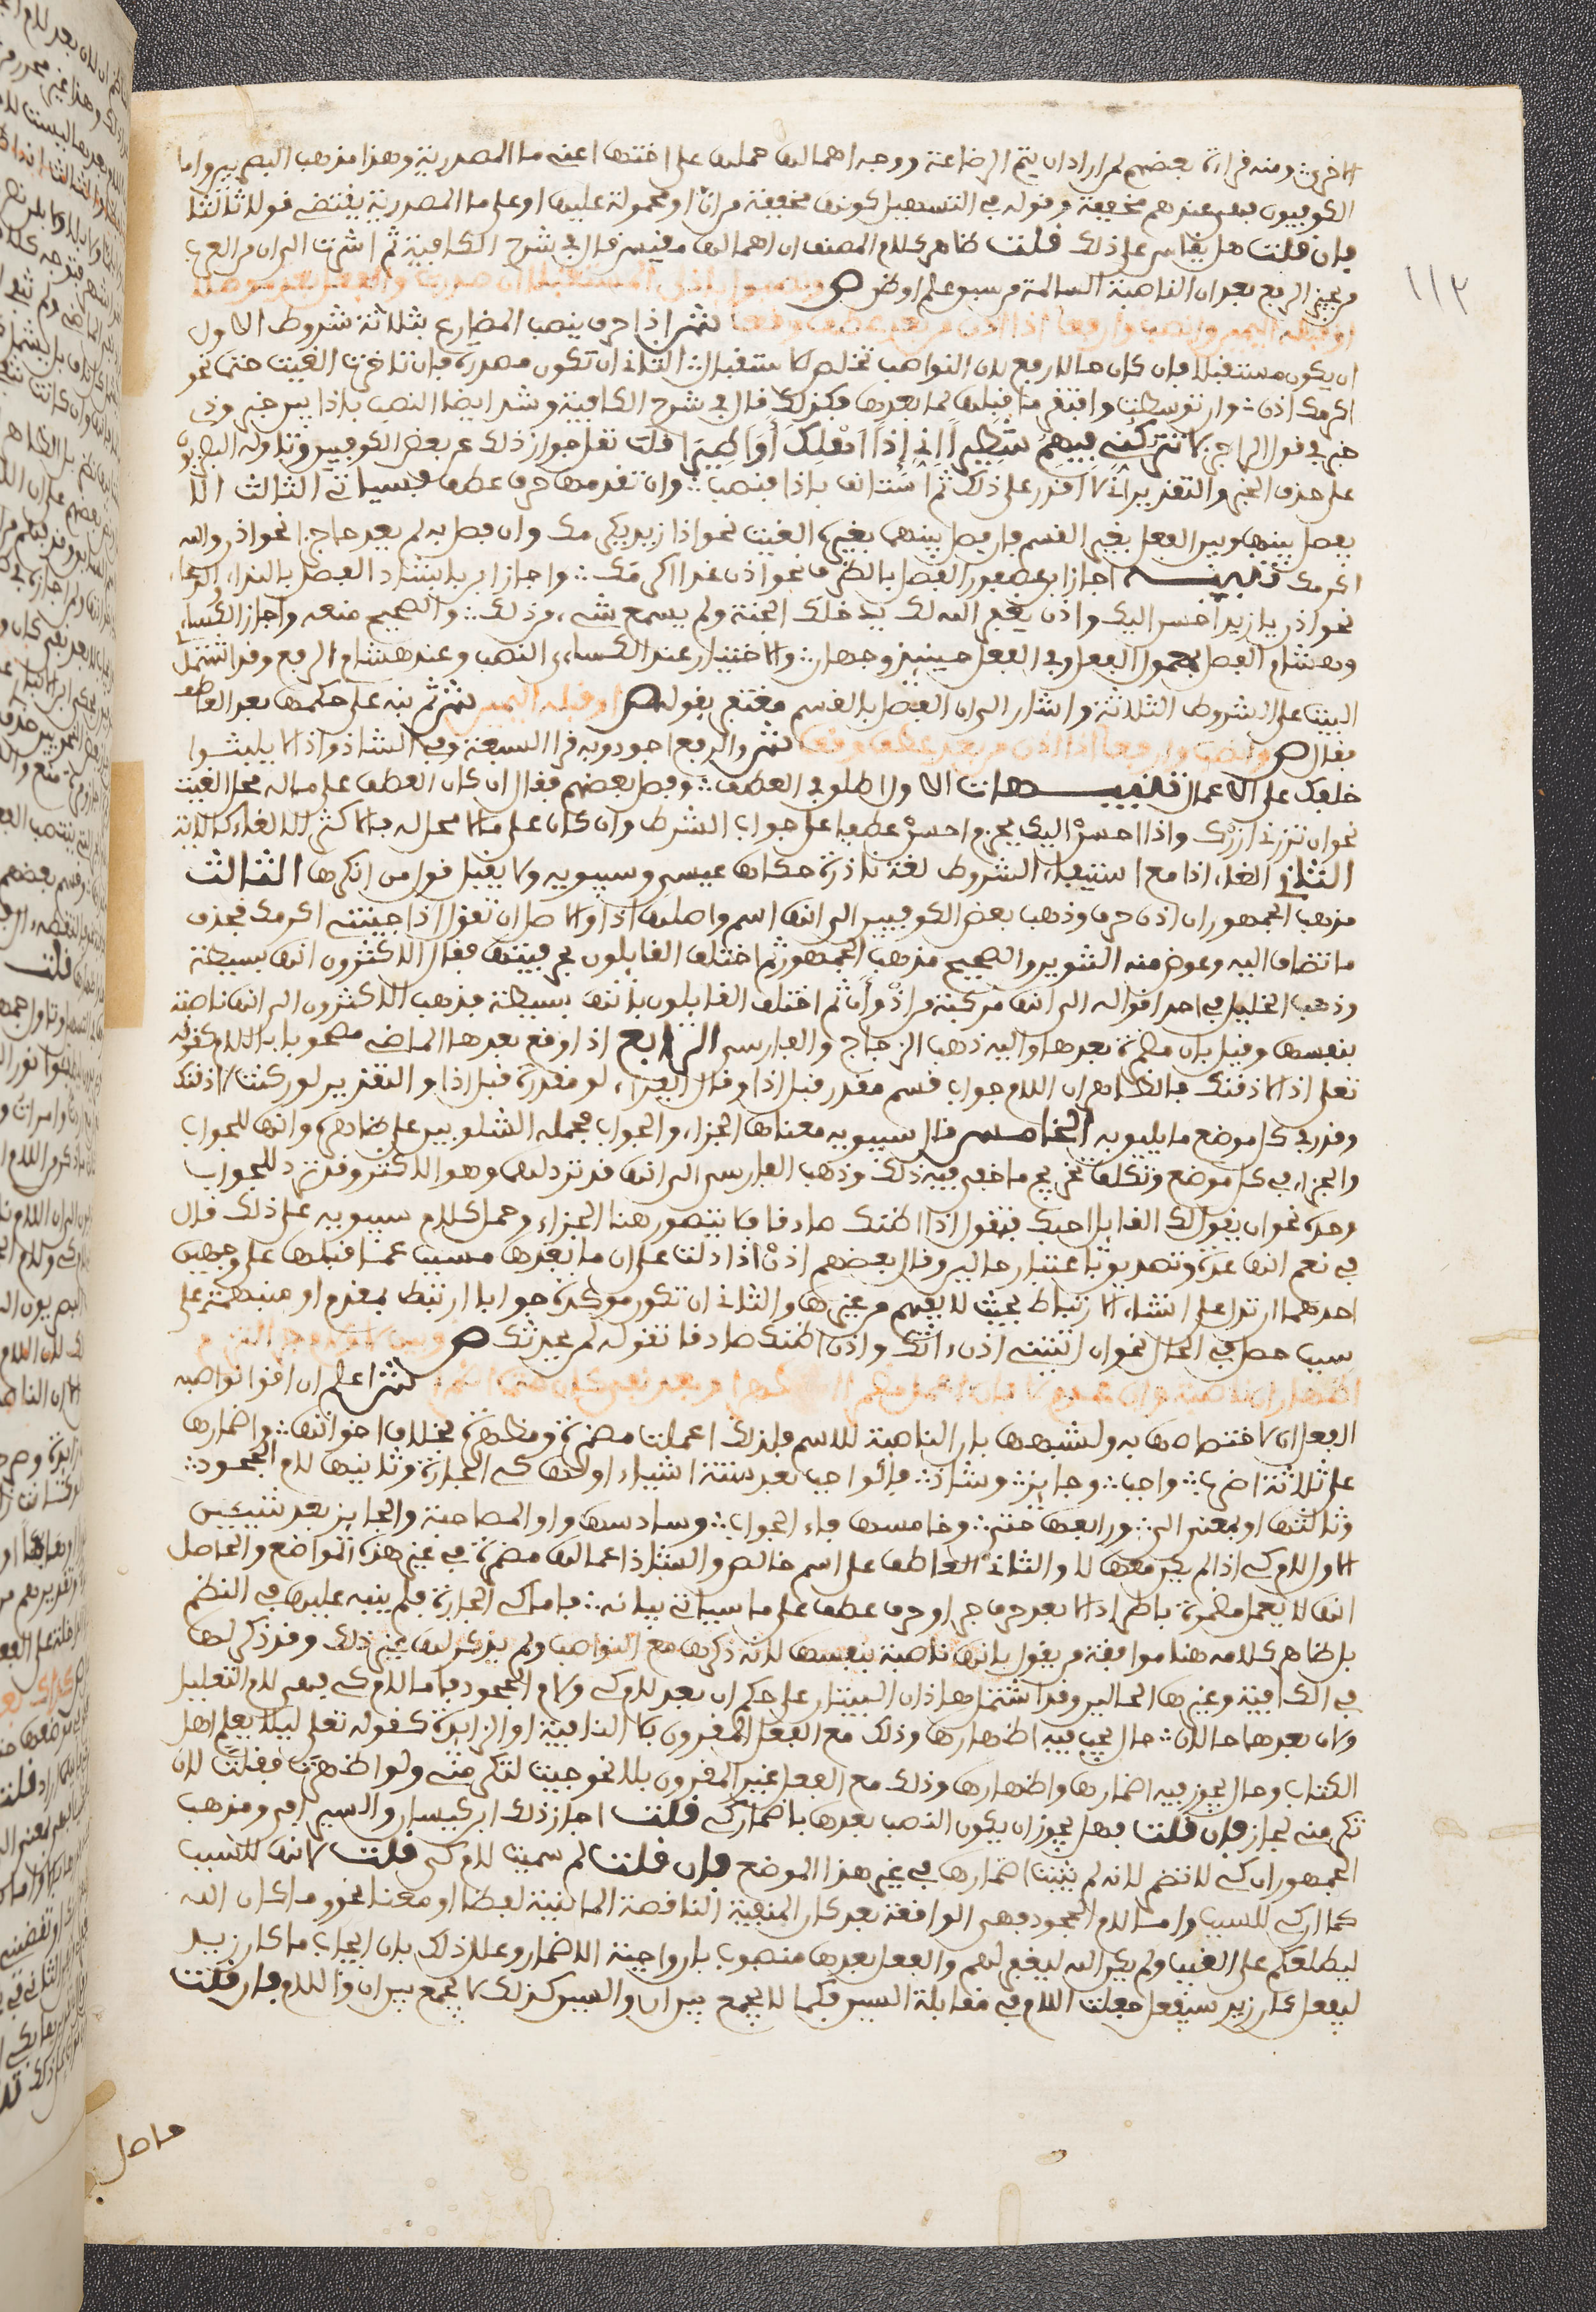 الاخرى ومنه قراءة بعضهم لمن اراد ان يتم الرضاعة ووجه اهمالها حملها على اختها اعني ما المصدرية وهذا مذهب البصريين واما
الكوفيون فهي عندهم مخففة وقوله في التسهيل كونها مخففة من ان او محمولة عليها او على ما المصدرية يقتضي قولا ثالثا
فان قلت هل يقاس على ذلك قلت ظاهر كلام المصنف ان اهمالها مقيس قال في شرح الكافية ثم اشرت الى ان من العرب
من يجيز الرفع بعد ان الناصبة السالمة من سبق علم او ظن ص ونصبوا باذن المستقبلا ان صدرت والفعل بعد موصلا
او قبله اليمين وانصب وارفعا اذا اذن من بعد عطف وقعا ش اذا حرف ينصب المضارع بثلاثة شروط الاول
ان يكون مستقبلا فان كان حالا رفع لان النواصب تخلص الاستقبال الثاني ان تكون مصدرة فان تاخرت الغيت حتما نحو
اكرمك اذن وان توسطت وافتقر ما قبلها لما بعدها فكذلك قال في شرح الكافية وشذ ايضا النصب باذا بين خبر وذي
خبر في قول الراجز لا تتركني فيهم شطيرا اني اذا اهلك او اطيرا قلت نقل جواز ذلك عن بعض الكوفيين وتاوله البصريون
على حذف الخبر والتقدير اني لا اقدر على ذلك ثم استانف باذا فنصب وان تقدمها حرف عطف فسياتي الثالث الا
يفصل بينها وبين الفعل بغير القسم فان فصل بينهما بغيره الغيت نحو اذا زيد يكرمك وان فصل به لم يعد حاجزا نحو اذن والله
اكرمك تنبيه اجاز ابن عصفور الفصل بالظرف نحو اذن غدا اكرمك واجاز ابن بابشاذ الفصل بالنداء والدعاء
نحو اذن يا زيد احسن اليك واذن يغفر الله لك يدخلك الجنة ولم يسمع شيء من ذلك والصحيح منعه واجاز الكساءي
وهشام الفصل بمعمول الفعل وفي الفعل حينيذ وجهان والاختيار عند الكساءي النصب وعند هشام الرفع وقد اشتمل
البيت على الشروط الثلاثة واشار الى ان الفصل بالقسم مغتفر بقوله ص او قبله اليمين ش ثم نبه على حكمها بعد العاطف
فقال ص وانصب وارفعا اذا اذن من بعد عطف وقعا ش والرفع اجود وبه قرا السبعة وفي الشاذ واذا لا يلبثوا
خلفك على الاعمال تنبيهات الاول اطلق في العطف وفصل بعضهم فقال ان كان العطف على ما له محل الغيت
نحو ان تزرني ازرك واذا احسن اليك بجزم احسن عطفا على جواب الشرط وان كان على ما لا محل له فالاكثر الالغاء كالاية
الثاني الغاء اذا مع استيفاء الشروط لغة نادرة حكاها عيسى وسيبويه ولا يقبل قول من انكرها الثالث
مذهب الجمهور ان اذن حرف وذهب بعض الكوفيين الى انها اسم واصلها اذا والاصل ان تقول اذا جيتني اكرمك فحذف
ما تضاف اليه وعوض منه التنوين والصحيح مذهب الجمهور ثم اختلف القايلون بحرفيتها فقال الاكثرون انها بسيطة
وذهب الخليل في احد اقواله الى انها مركبة من اذ وان ثم اختلف القايلون بانها بسيطة فذهب الاكثرون الى انها ناصبة
بنفسها وقيل بان مضمرة بعدها واليه ذهب الزجاج والفارسي الرابع اذا وقع بعدها الماضي مصحوبا باللام كقوله
تعلى اذا لاذقنك فالظاهر ان اللام جواب قسم مقدر قبل اذا وقال الفراء لو مقدرة قبل اذا والتقدير لو ركنت لاذقنك
وقدر في كل موضع ما يليق به الخامس قال سيبويه معناها الجزاء والجواب فحمله الشلوبين على ظاهره وانها للجواب
والجزاء في كل موضع وتكلف تخريج ما خفي فيه ذلك وذهب الفارسي الى انها قد ترد لهما وهو الاكثر وقد ترد للجواب
وحده نحو ان يقول لك القايل احبك فتقول اذا اظنك صادقا فلا يتصور هنا الجزاء وحمل كلام سيبويه على ذلك قال
في نعم انها عدة وتصديق باعتبار حالين وقال بعضهم اذن اذا دلت على ان ما بعدها مسبب عما قبلها على وجهين
احدهما ان تدل على انشاء الارتباط بحيث لا يفهم من غيرها والثاني ان تكون موكدة جوابا ارتبط بمقدم او منبهة على
سبب حصل في الحال نحو ان اتيتني اذن ءاتك واذن اظنك صادقا تقوله لمن يحدثك ص وبين لا ولام جر التزم
اظهار ان ناصبة وان عدم لا فان اعمل مظهرا او مضمرا وبعد نفي كان حتما اضمرا ش اعلم ان اقوا نواصب
الفعل ان لاختصاصها به ولشبهها بان الناصبة للاسم فلذلك اعملت مضمرة ومظهرة بخلاف اخواتها واضمارها
على ثلاثة اضرب واجب وجايز وشاذ فالواجب بعد ستة اشياء اولها كي الجارة وثانيها لام الجحود
وثالثها او بمعنى الى ورابعها حتى وخامسها فاء الجواب وسادسها واو المصاحبة والجايز بعد شيئين
الاول لام كي اذا لم يكن معها لا والثاني العاطف على اسم خالص والشاذ اعمالها مضمرة في غير هذه المواضع والحاصل
انها لا يعمل مضمرة باطراد الا بعد حرف جر او حرف عطف على ما سياتي بيانه فاما كي الجارة فلم ينبه عليها في النظم
بل ظاهر كلامه هنا موافقة من يقول بانها ناصبة بنفسها لانه ذكرها مع النواصب ولم يذكر لها غير ذلك وقد ذكر لها
في الكافية وغيرها الحالين وقد اشتمل هاذان البيتان على حكم ان بعد لام كي ولام الجحود فاما لام كي فهي لام التعليل
ولان بعدها حالان حال يجب فيه اظهارها وذلك مع الفعل المقرون بلا النافية او الزايدة كقوله تعلى ليلا يعلم اهل
الكتاب وحال يجوز فيه اضمارها واظهارها وذلك مع الفعل غير المقرون بلا نحو جيت لتكرمني ولو اظهرت فقلت لان
تكرمني لجاز فان قلت فهل يجوز ان يكون النصب بعدها باضمار كي قلت اجاز ذلك ابن كيسان والسيرافي ومذهب
الجمهور ان كي لا تضمر لانه لم يثبت اضمارها في غير هذا الموضع فان قلت لم سميت لام كي قلت لانها للسبب
كما ان كي للسبب واما لام الجحود فهي الواقعة بعد كان المنفية الناقصة الماضية لفظا او معنا نحو وما كان الله
ليطلعكم على الغيب ولم يكن الله ليغفر لهم والفعل بعدها منصوب بان واجبة الاضمار وعلل ذلك بان ايجاب ما كان زيد
ليفعل كان زيد سيفعل جعلت اللام في مقابلة السين فكما لا يجمع بين ان والسين كذلك لا يجمع بين ان واللام فان قلت
١١٢